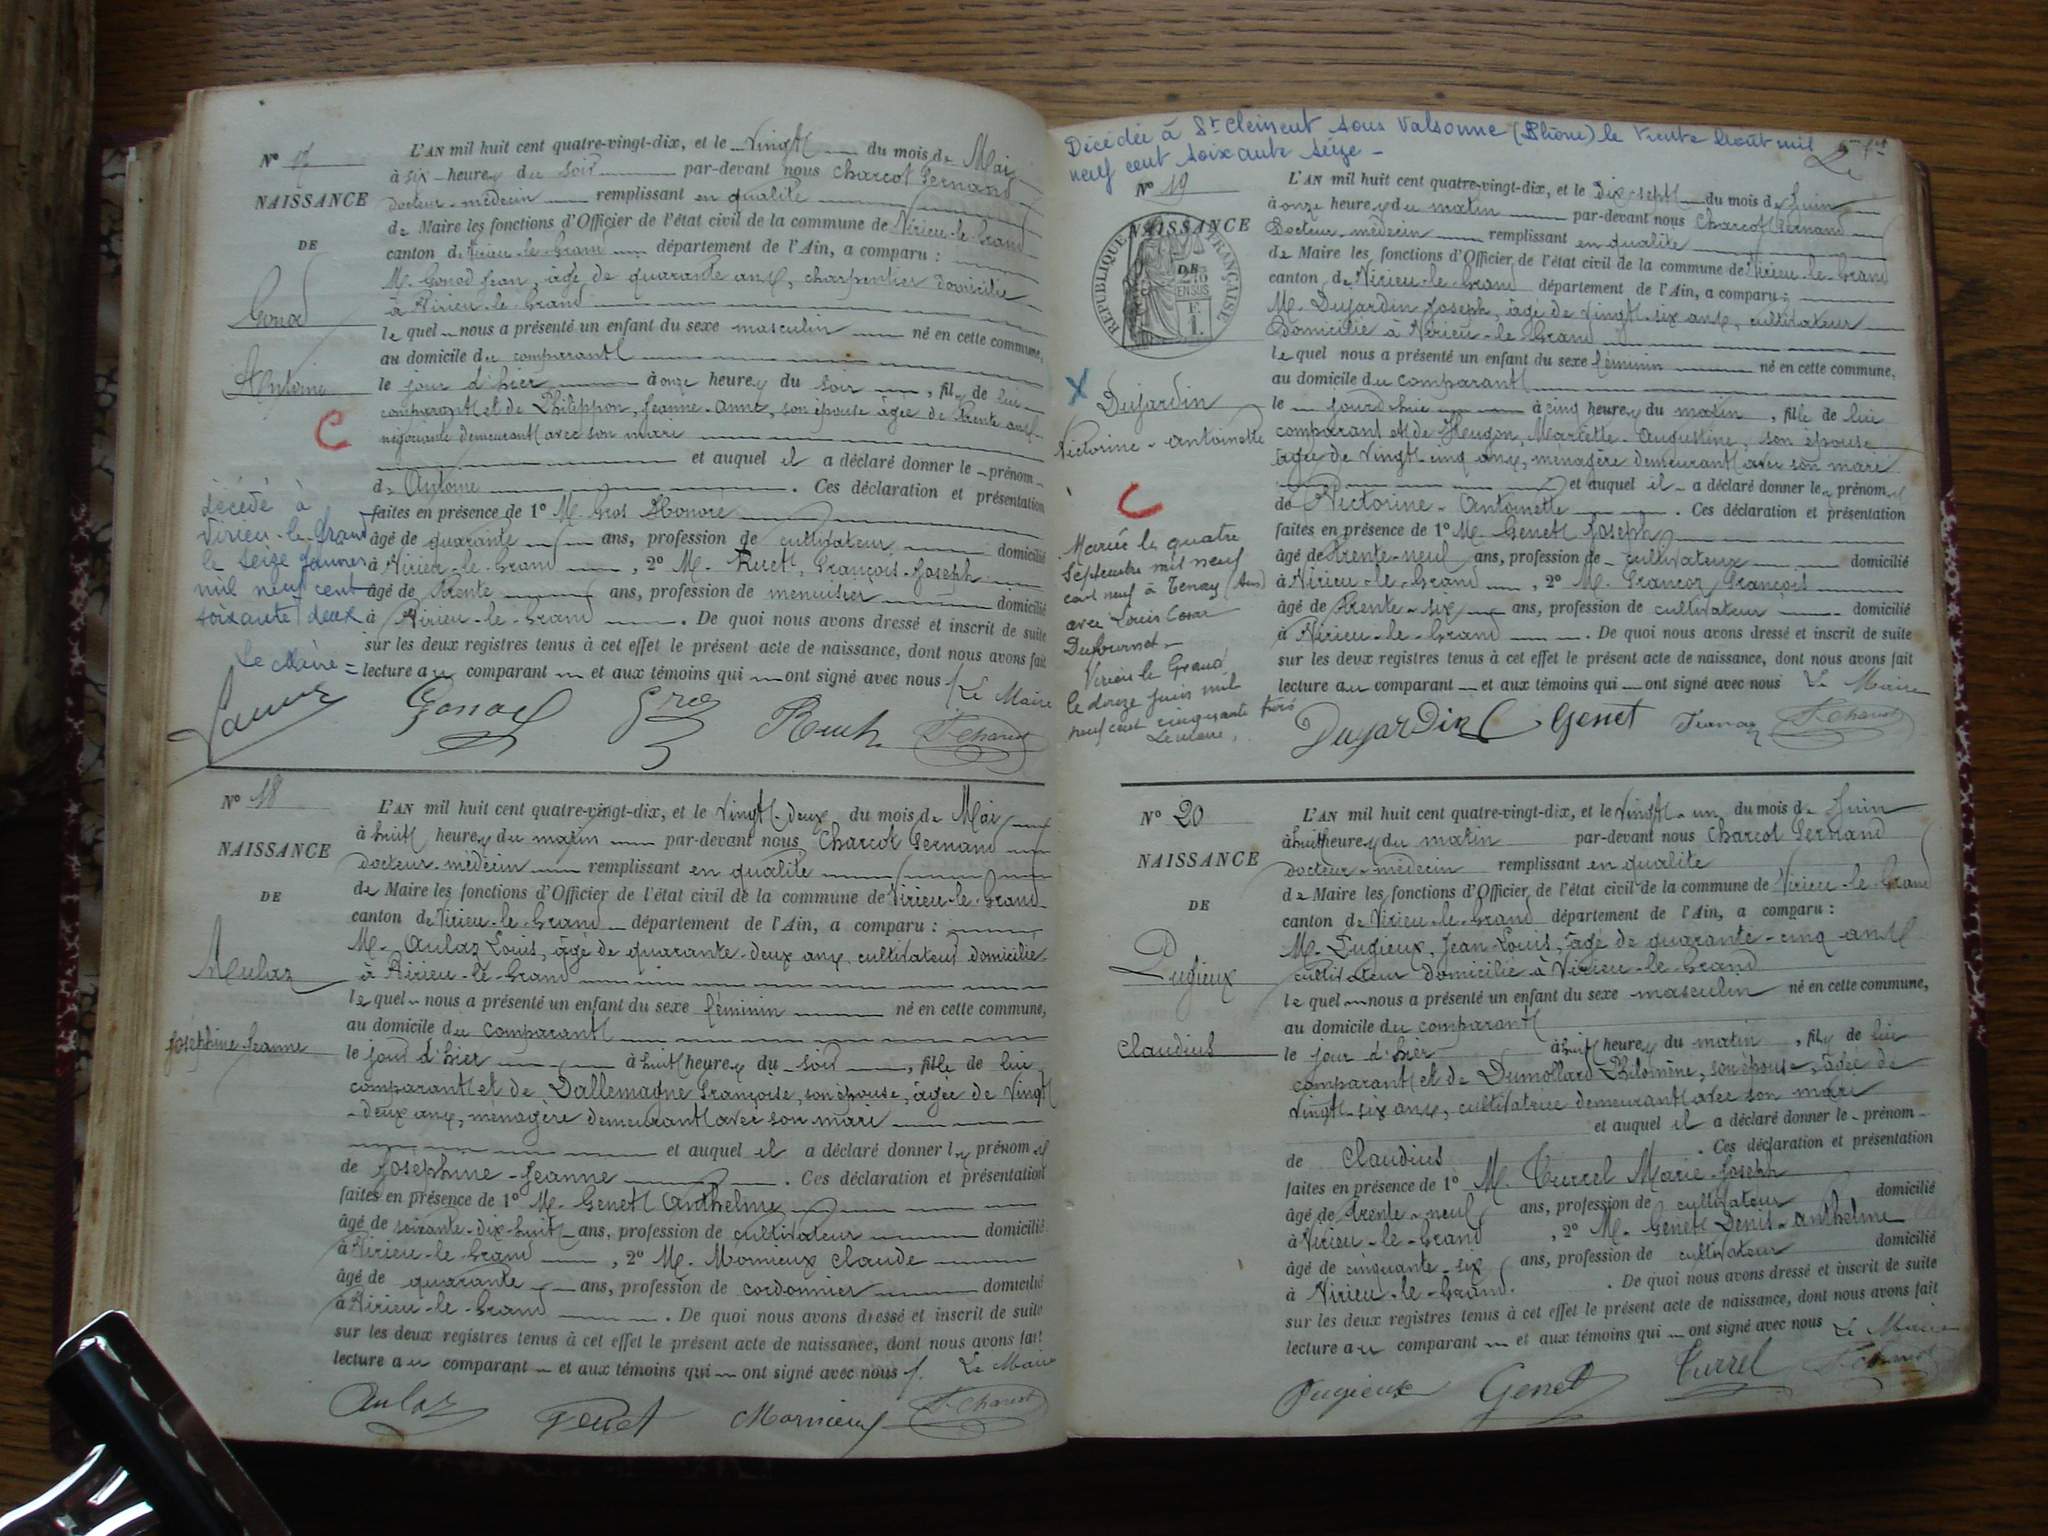 N° 17
NAISSANCE
DE
Gonod
Antoine
C
décédé à
Virieu-le-Grand
le seize Janvier
mil neuf cent
soixante deux
Le Maire =
L'AN mil huit cent quatre-vingt-dix, et le vingt du mois de Mai
à six heures du soir par-devant nous Charcot Fernand
docteur-médecin remplissant en qualité
de Maire les fonctions d'Officier de l'état civil de la commune de Virieu-le-Grand
canton de Virieu-le-Grand département de l'Ain, a comparu :
M. Gonod Jean, âgé de quarante ans, charpentier domicilié
à Virieu-le-Grand
lequel nous a présenté un enfant du sexe masculin né en cette commune,
au domicile du comparant
le jour d'hier à onze heures du soir, fils de lui
comparant et de Philippon, Jeanne-Anne, son épouse âgée de trente ans
négociante demeurant avec son mari
et auquel il a déclaré donner le prénom
de Antoine. Ces déclaration et présentation
faites en présence de 1° M. Gros Honoré
âgé de quarante ans, profession de cultivateur domicilié
à Virieu-le-Grand, 2° M. Ruet, François-Joseph
âgé de trente ans, profession de menuisier domicilié
à Virieu-le-Grand. De quoi nous avons dressé et inscrit de suite
sur les deux registres tenus à cet effet le présent acte de naissance, dont nous avons fait
lecture au comparant et aux témoins qui ont signé avec nous Le Maire
Gonod Gros Ruet F. Charcot
N° 18
NAISSANCE
DE
Aulaz
Joséphine-Jeanne
L'AN mil huit cent quatre-vingt-dix, et le vingt-deux du mois de Mai
à huit heures du matin par-devant nous Charcot Fernand
docteur-médecin remplissant en qualité
de Maire les fonctions d'Officier de l'état civil de la commune de Virieu-le-Grand
canton de Virieu-le-Grand département de l'Ain, a comparu :
M. Aulaz Louis, âgé de quarante-deux ans, cultivateur domicilié
à Virieu-le-Grand
lequel nous a présenté un enfant du sexe féminin né en cette commune,
au domicile du comparant
le jour d'hier à huit heures du soir, fille de lui
comparant et de Dallemagne Françoise, son épouse, âgée de vingt
-deux ans, ménagère demeurant avec son mari
et auquel il a déclaré donner les prénoms
de Joséphine-Jeanne. Ces déclaration et présentation
faites en présence de 1° M. Genet Anthelme
âgé de soixante-dix-huit ans, profession de cultivateur domicilié
à Virieu-le-Grand, 2° M. Mornieux Claude
âgé de quarante ans, profession de cordonnier domicilié
à Virieu-le-Grand. De quoi nous avons dressé et inscrit de suite
sur les deux registres tenus à cet effet le présent acte de naissance, dont nous avons fait
lecture au comparant et aux témoins qui ont signé avec nous Le Maire
Aulaz Genet Mornieux F. Charcot
Décédée à St Clément sous Valsonne (Rhône) le trente Août mil
neuf cent soixante seize -
N° 19
NAISSANCE
DE
RÉPUBLIQUE FRANÇAISE
EN SUS
Dujardin
Victorine-Antoinette
C
Mariée le quatre
Septembre mil neuf
cent neuf à Tenay (Ain)
avec Louis César
Dufournet -
Virieu le Grand
le douze Juin mil
neuf cent cinquante trois
Le Maire,
L'AN mil huit cent quatre-vingt-dix, et le dix-sept du mois de Juin
à onze heures du matin par-devant nous Charcot Fernand
Docteur-médecin remplissant en qualité
de Maire les fonctions d'Officier de l'état civil de la commune de Virieu-le-Grand
canton de Virieu-le-Grand département de l'Ain, a comparu :
M. Dujardin Joseph, âgé de vingt-six ans, cultivateur
domicilié à Virieu-le-Grand
lequel nous a présenté un enfant du sexe féminin né en cette commune,
au domicile du comparant
le jourd'hui à cinq heures du matin, fille de lui
comparant et de Hugon, Marcelle-Augustine, son épouse
âgée de vingt-cinq ans, ménagère demeurant avec son mari
et auquel il a déclaré donner les prénoms
de Victorine-Antoinette. Ces déclaration et présentation
faites en présence de 1° M. Genet Joseph
âgé de trente-neuf ans, profession de cultivateur domicilié
à Virieu-le-Grand, 2° M. François
âgé de trente-six ans, profession de cultivateur domicilié
à Virieu-le-Grand. De quoi nous avons dressé et inscrit de suite
sur les deux registres tenus à cet effet le présent acte de naissance, dont nous avons fait
lecture au comparant et aux témoins qui ont signé avec nous Le Maire
Dujardin Genet F. Charcot
N° 20
NAISSANCE
DE
Pugieux
Claudius
L'AN mil huit cent quatre-vingt-dix, et le vingt-un du mois de Juin
à huit heures du matin par-devant nous Charcot Fernand
docteur-médecin remplissant en qualité
de Maire les fonctions d'Officier de l'état civil de la commune de Virieu-le-Grand
canton de Virieu-le-Grand département de l'Ain, a comparu :
M. Pugieux, Jean-Louis, âgé de quarante-cinq ans
cultivateur domicilié à Virieu-le-Grand
lequel nous a présenté un enfant du sexe masculin né en cette commune,
au domicile du comparant
le jour d'hier à huit heures du matin, fils de lui
comparant et de Dumollard Philomène, son épouse, âgée de
vingt-six ans, cultivatrice demeurant avec son mari
et auquel il a déclaré donner le prénom
de Claudius. Ces déclaration et présentation
faites en présence de 1° M. Turrel Marie-Joseph
âgé de trente-neuf ans, profession de cultivateur domicilié
à Virieu-le-Grand, 2° M. Genet Denis-Anthelme
âgé de cinquante-six ans, profession de cultivateur domicilié
à Virieu-le-Grand. De quoi nous avons dressé et inscrit de suite
sur les deux registres tenus à cet effet le présent acte de naissance, dont nous avons fait
lecture au comparant et aux témoins qui ont signé avec nous Le Maire
Pugieux Genet Turrel F. Charcot